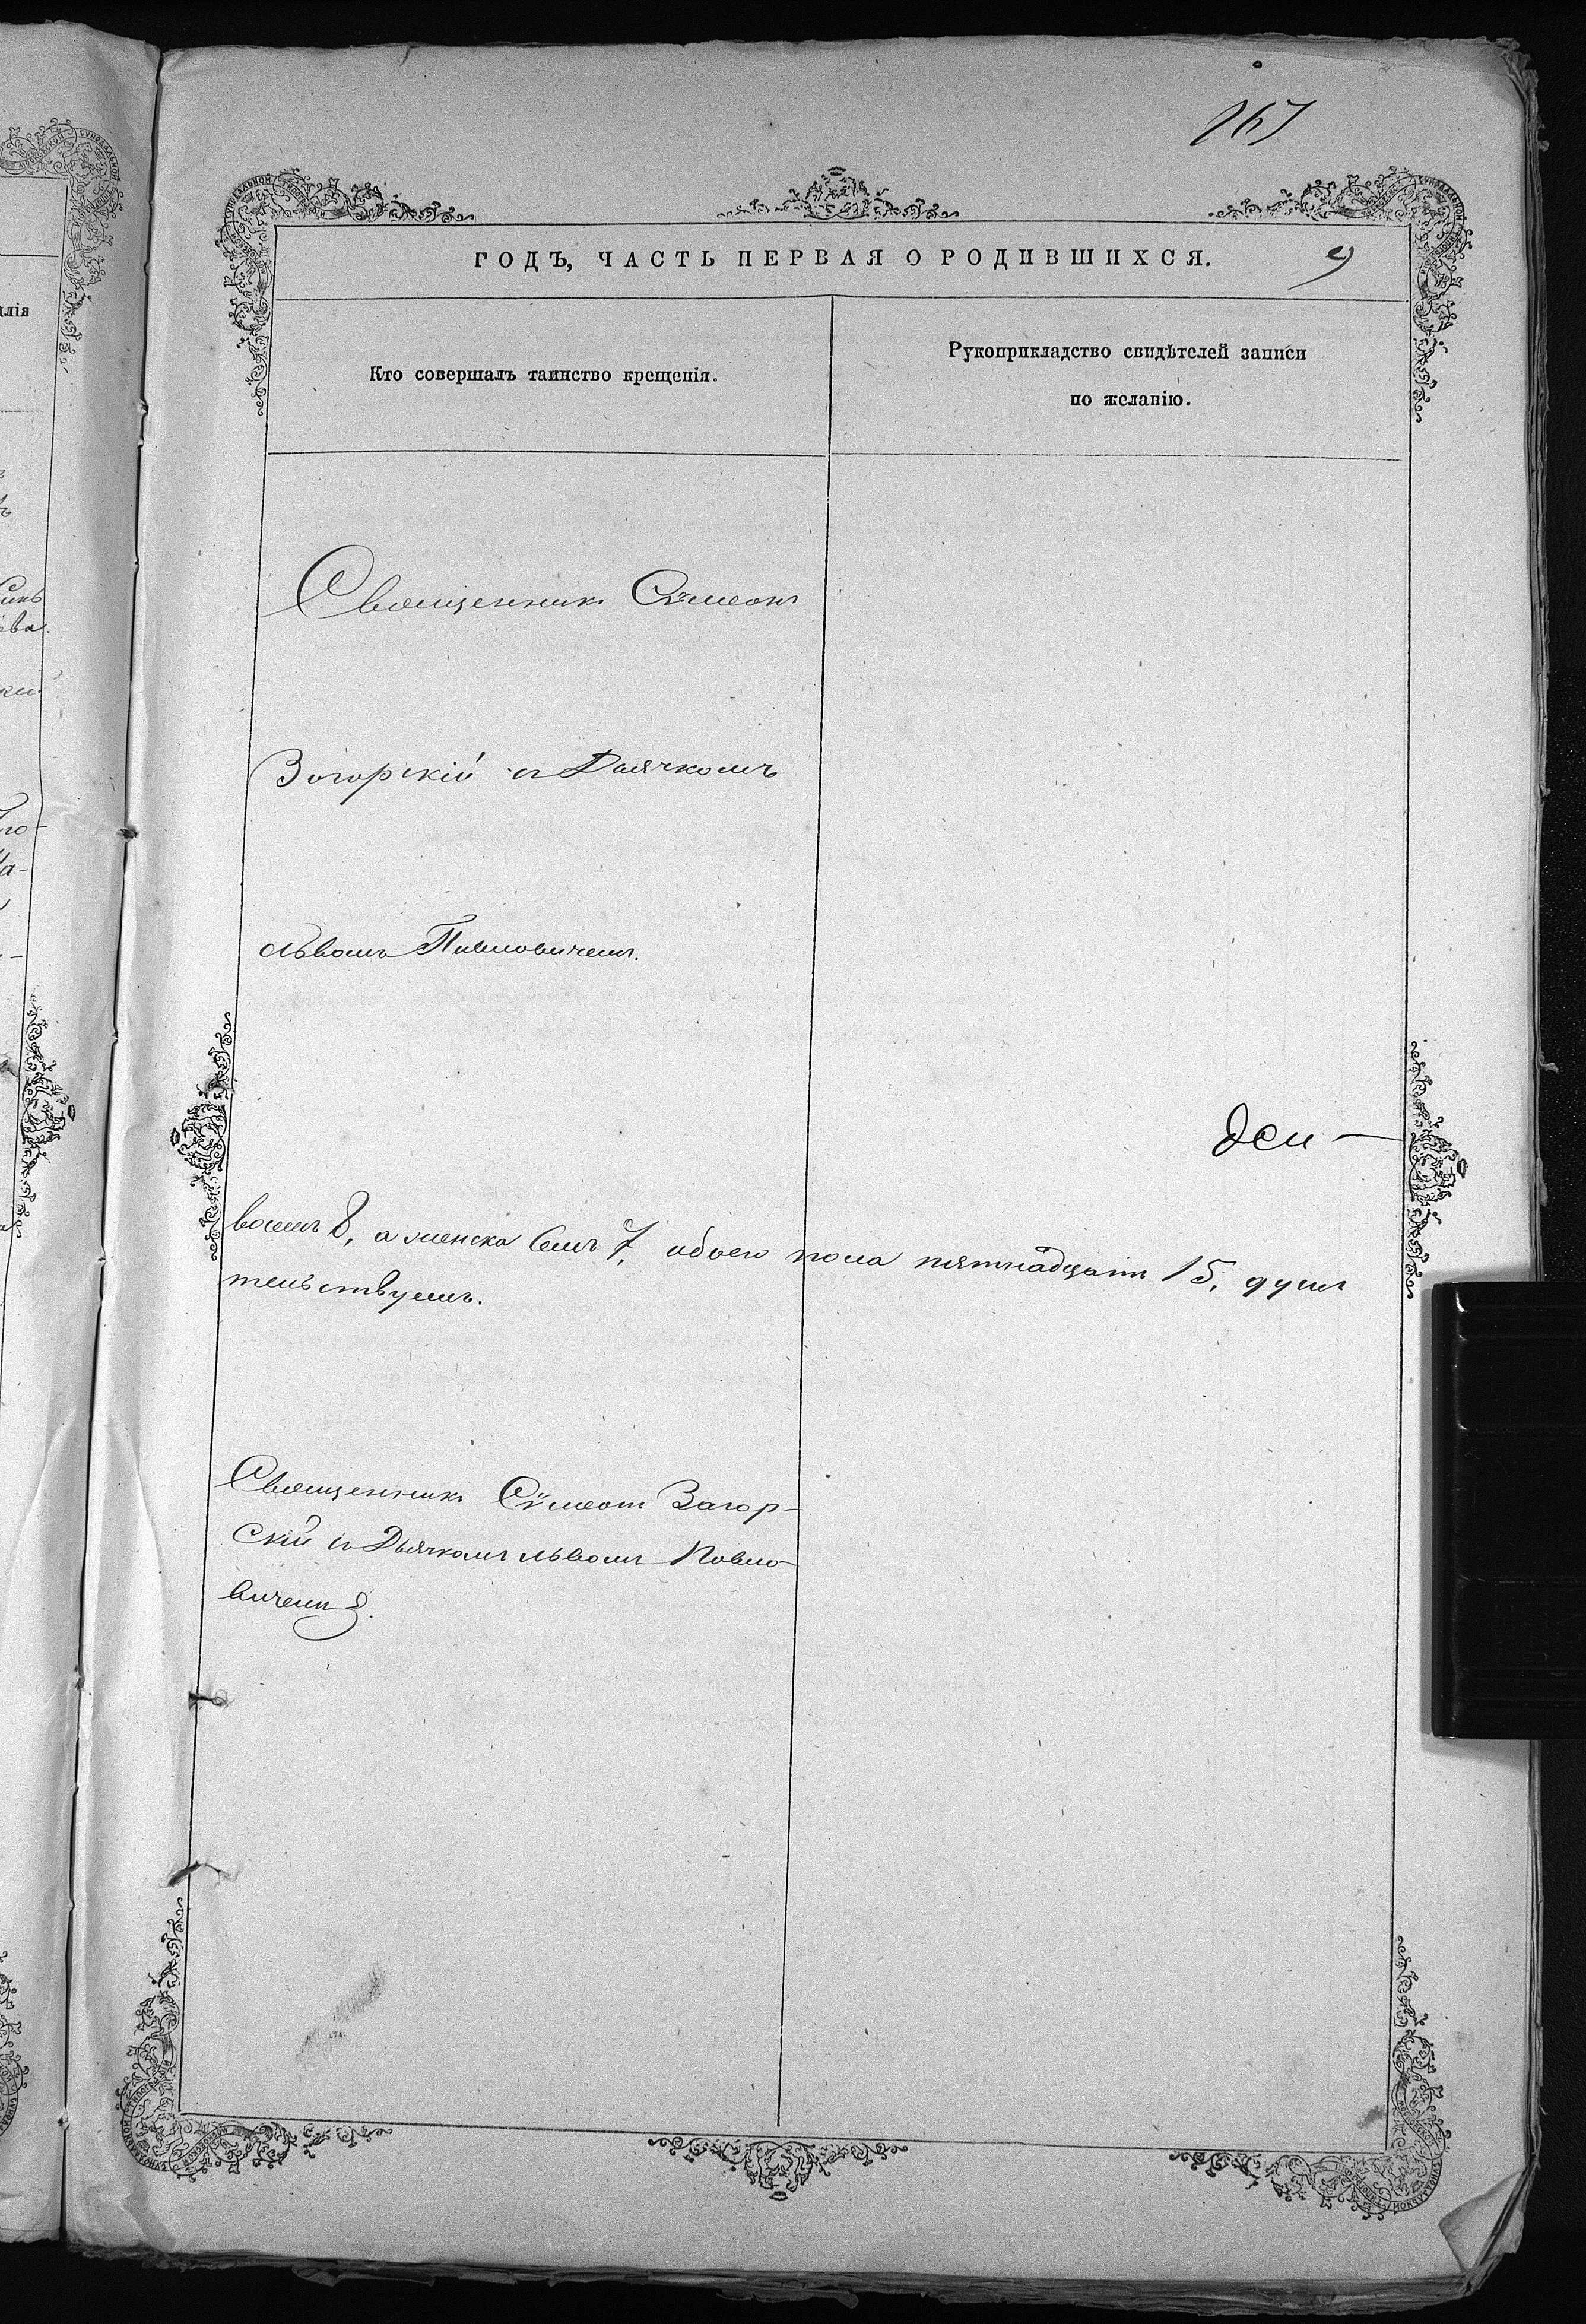 167
ГОДЪ, ЧАСТЬ ПЕРВАЯ О РОДИВШИХСЯ. 9
Кто совершалъ таинство крещенія.
Рукоприкладство свидѣтелей записи
по желанію.
Священникъ Сѵмеонъ
Загорскій съ Дьячкомъ
Львомъ
восемъ 8, а женска семъ 7, обоего пола пятнадцать 15, душъ
тельствуемъ.
Священникъ Сѵмеонъ Загор-
скій съ Дьячкомъ Львомъ